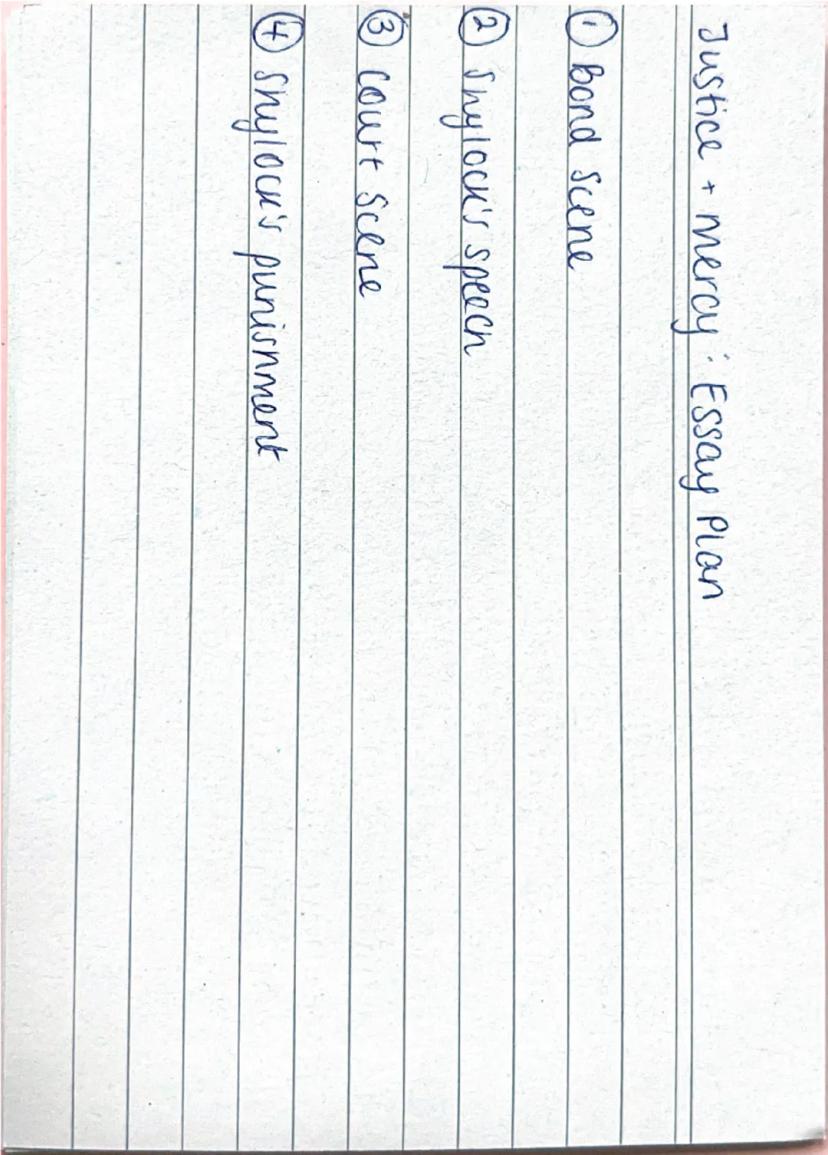 Justice + mercy: Essay Plan
① Bond Scene
② Shylock's speech
③ Court Scene
④ Shylock's punishment